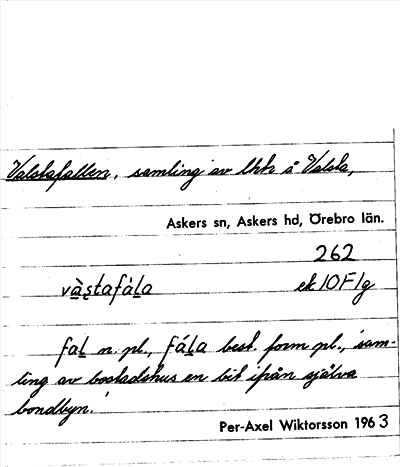 Valstafallen, samling av lht å Valsta,
Askers sn, Askers hd, Örebro län.
262
vàstafàla ek 10F1g
fal n. pl., fála best. form pl., 'sam-
ling av bostadshus en bit ifrån själva
bondbyn.'
Per-Axel Wiktorsson 1963